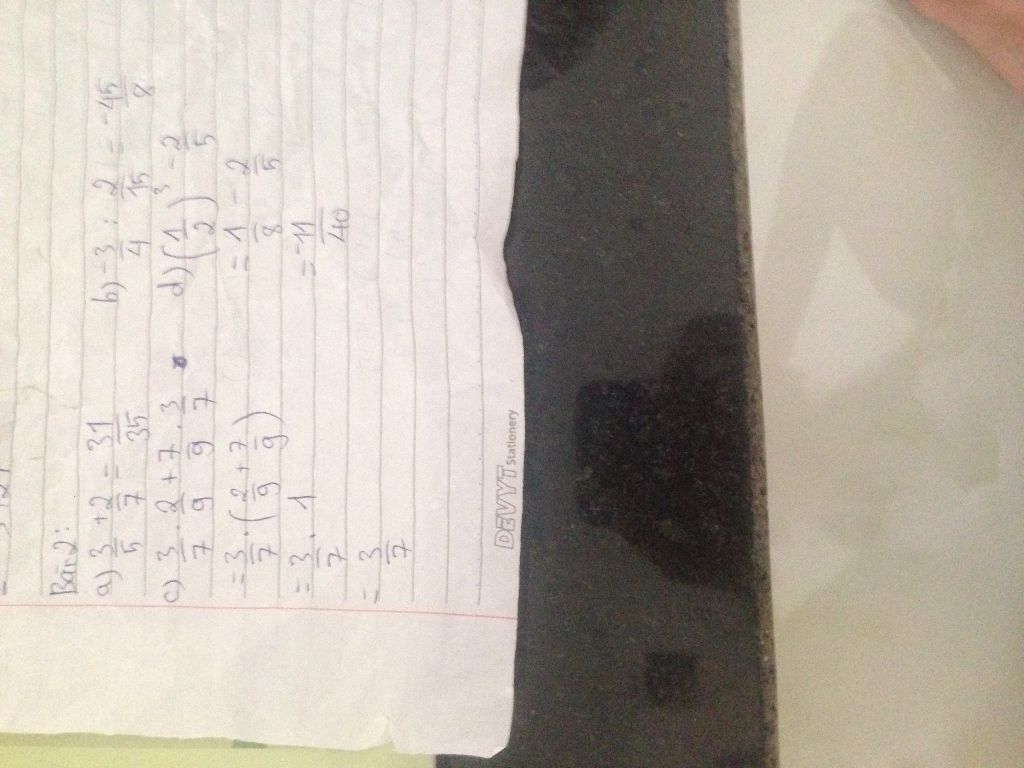 Bài 2:
a) 3/5 + 2/7 = 31/35
b) -3/4 : 2/15 = -45/8
c) 3/7 . 2/9 + 7/9 . 3/7
= 3/7 . (2/9 + 7/9)
= 3/7 . 1
= 3/7
d) (1/2)³ - 2/5
= 1/8 - 2/5
= -11/40
DEVYT Stationery